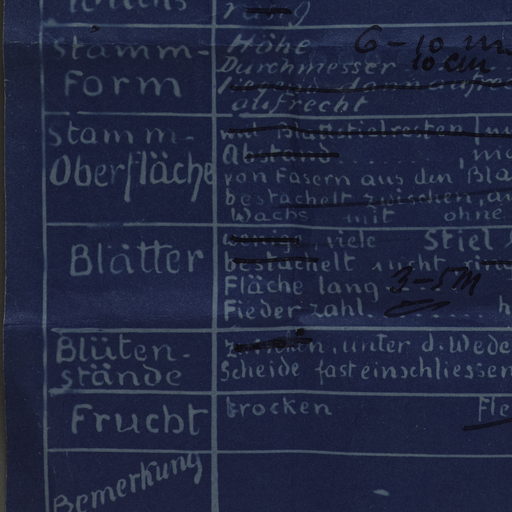 Stamm-
Form
Höhe 6-10 m
Durchmesser 10 cm
liegend dann aufrecht
aufrecht
Stamm-
Oberfläche
mit Blattstielresten
Abstand
von Fasern aus den Bla
bestachelt zwischen, au
Wachs mit ohne
Blätter
wenige, viele Stiel
bestachelt nicht
Fläche lang 3-5 M
Fiederzahl
Blüten-
stände
zwischen, unter d. Wede
Scheide fast einschliessen
Frucht
trocken Fle
Bemerkung